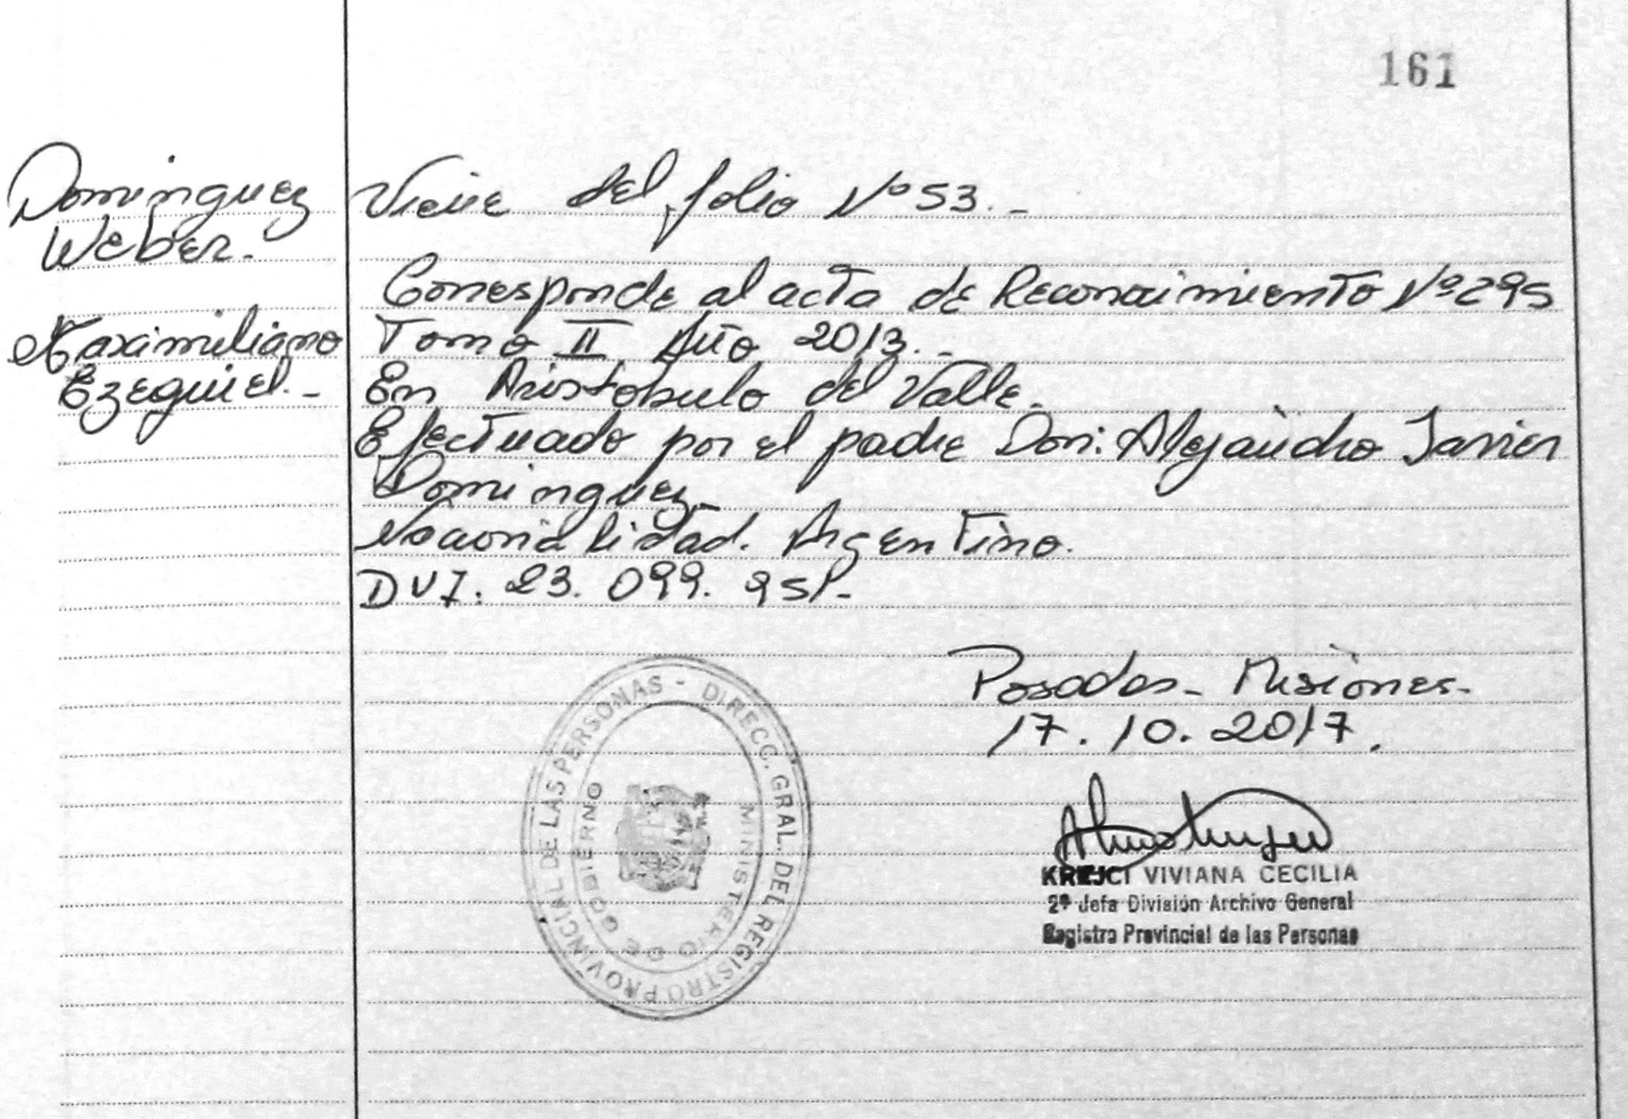 161
Dominguez
Weber.
Maximiliano
Ezequiel.-
Viene del folio Nº 53.-
Corresponde al acta de Reconocimiento Nº 295
Tomo II, Año 2013.-
En Aristobulo del Valle.
Efectuado por el padre Don: Alejandro Javier
Dominguez.
Nacionalidad. Argentino.
DNI. 23. 099. 951.-
Posadas - Misiones.
17.10.2017.
DIRECC. GRAL. DEL REGISTRO PROVINCIAL DE LAS PERSONAS -
MINISTERIO DE GOBIERNO
KREJCI VIVIANA CECILIA
2ª Jefa División Archivo General
Registro Provincial de las Personas